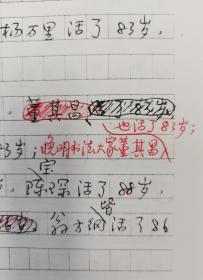 杨万里活了83岁,
董其昌
也活了83岁;
3岁;晚明书法大家董其昌
宝
陈琛活了88岁
皆
翁方纲活了86